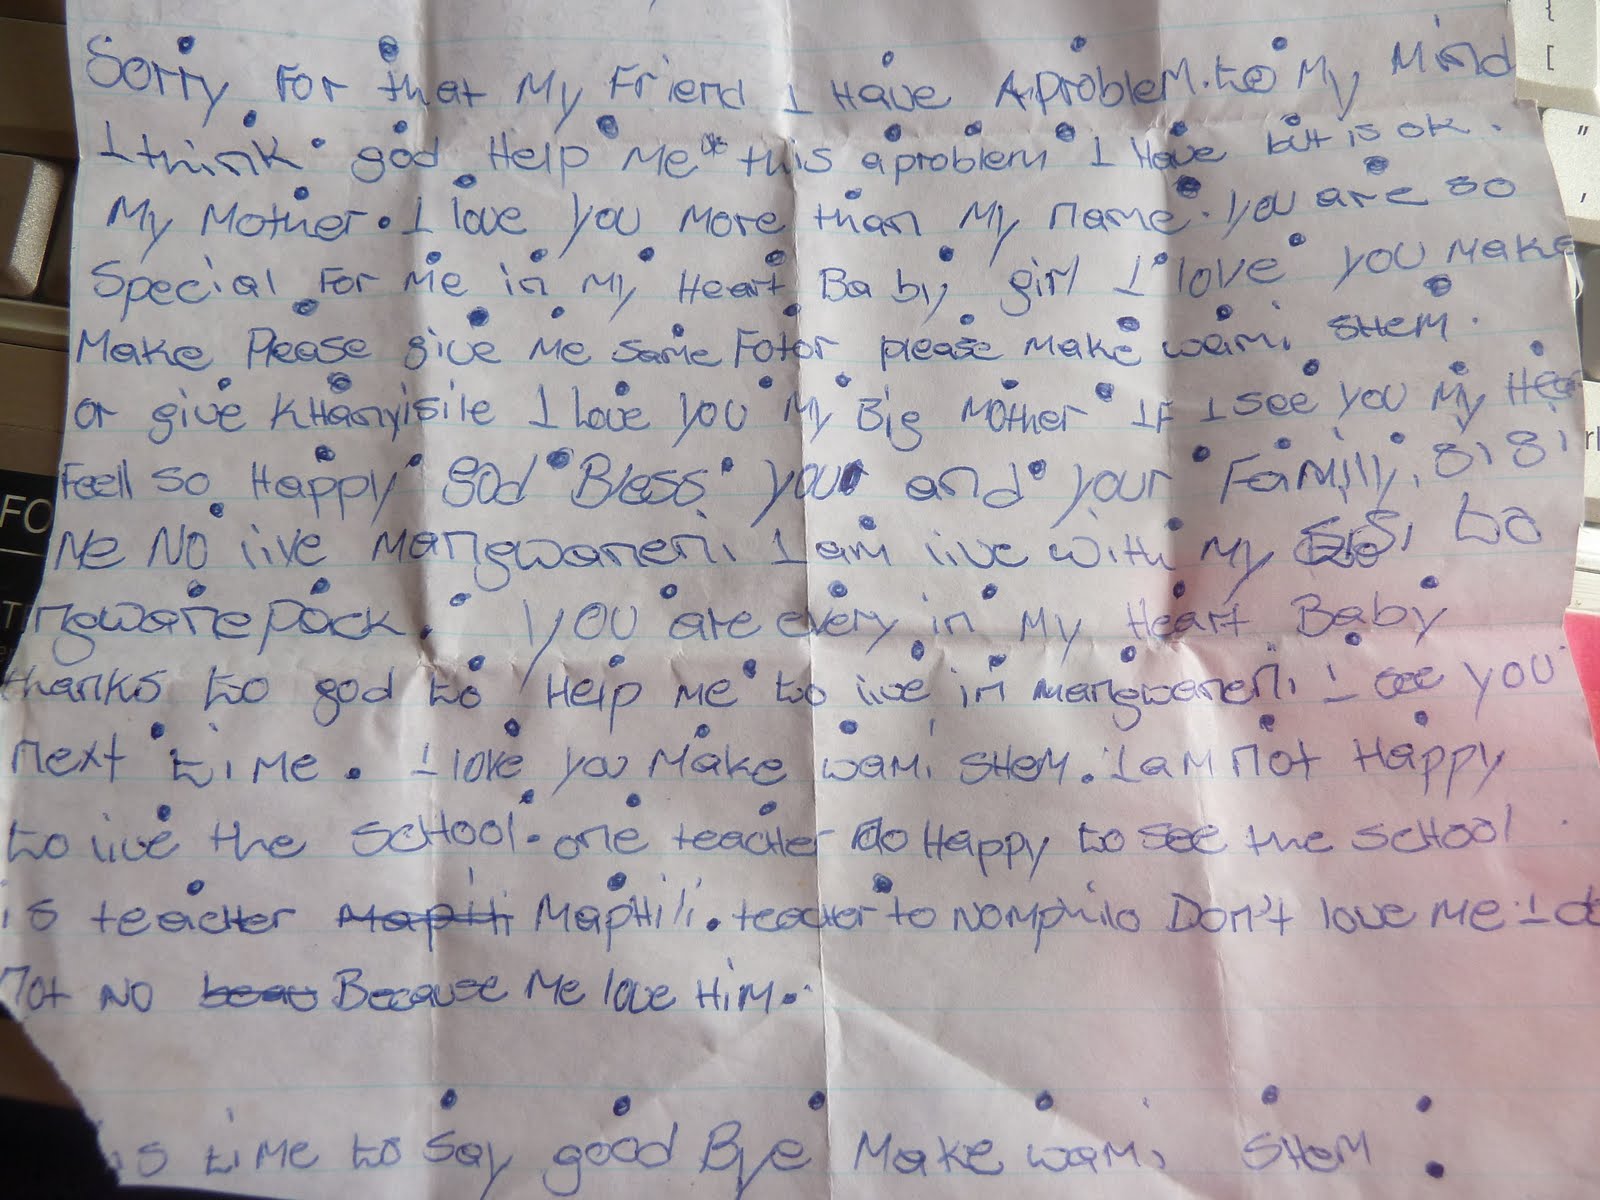 Sorry For that My Friend I Have A problem to My Mind
I think god Help Me this a problem I Have but is ok.
My Mother. I love you More than My name. you are so
Special For Me in My Heart Baby girl I love you Make
Make Please give Me same Fotor please Make wami SHEM.
or give KHanyisile I love you My Big Mother IF I see you My Hea
Feell so Happy God Bless you and your Familly.
Me No live Mangwaneni I am live with My to
ngwanepack. you are every in My Heart Baby
thanks to god to Help Me to live in Mangwaneni I see you
next time. I love you Make wami SHEM. I am not Happy
to live the SCHOOL. one teacher do Happy to see the SCHOOl
is teacher MapHili. teacher to Nomphilo Don't love Me I do
not no Because Me love Him.
is time to Say good Bye Make wami SHEM.